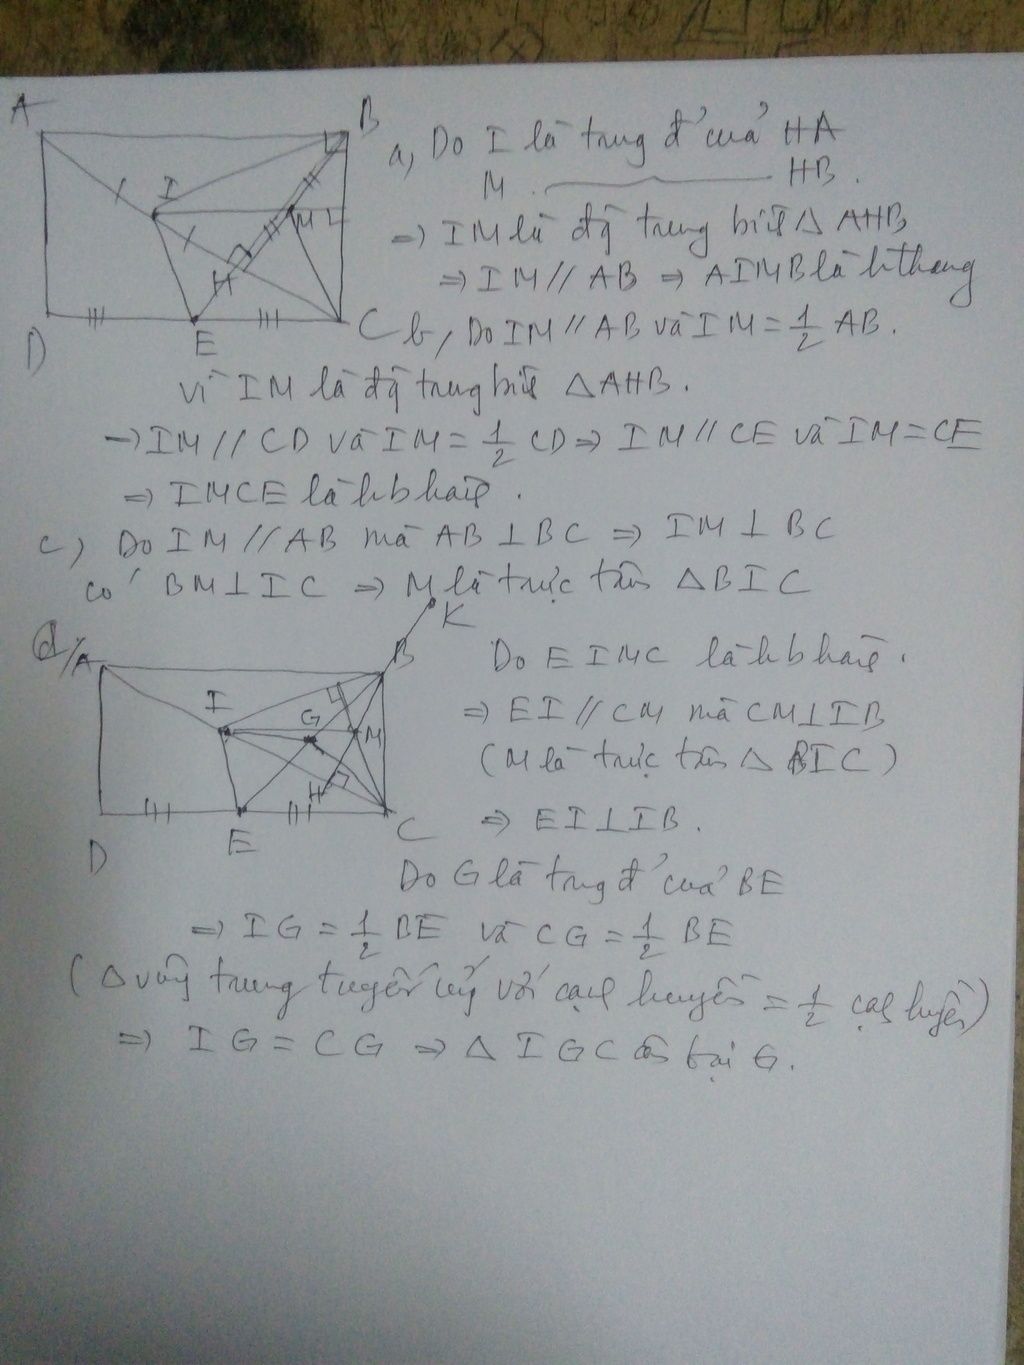 A
B
I
M
H
D
E
C
a, Do I là trung đ² của HA
M HB.
=> IM là đg trung bình Δ AHB
=> IM // AB => AIMB là hthang
b, Do IM // AB và IM = 1/2 AB.
vì IM là đg trung bình ΔAHB.
=> IM // CD và IM = 1/2 CD => IM // CE và IM = CE
=> IMCE là hbhành.
c) Do IM // AB mà AB ⊥ BC => IM ⊥ BC
có BM ⊥ IC => M là trực tâm ΔBIC
K
d/
A
B
I
G
M
H
D
E
C
Do EIMC là hbhành.
=> EI // CM mà CM ⊥ IB
(M là trực tâm Δ BIC)
=> EI ⊥ IB.
Do G là trung đ² của BE
=> IG = 1/2 BE và CG = 1/2 BE
(Δ vuông trung tuyến ứng với cạnh huyền = 1/2 cạnh huyền)
=> IG = CG => Δ IGC cân tại G.